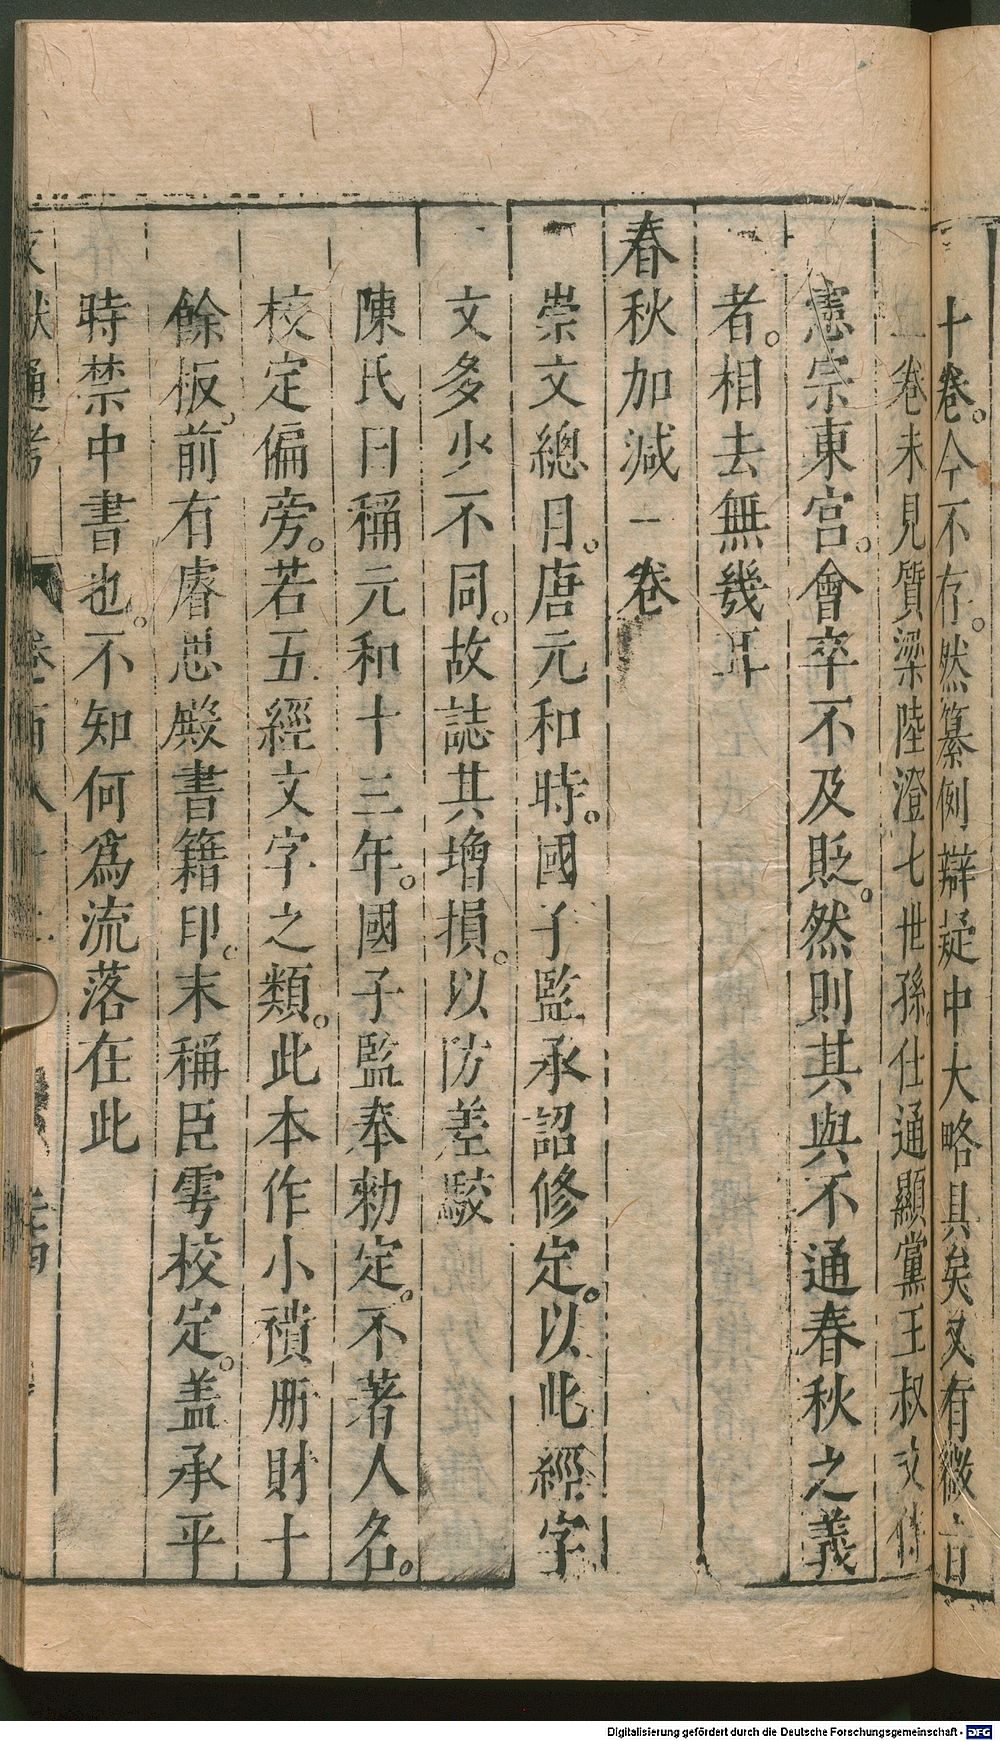 十卷。今不存。然纂例辯疑中大略具矣又有微旨
一卷未見質梁陸澄七世孫仕通顯黨王叔文侍
憲宗東宮。會卒不及貶。然則其與不通春秋之義
者。相去無幾耳
春秋加減一卷
崇文總曰。唐元和時。國子監承詔修定。以此經字
文多少不同。故誌其增損。以防差駮
陳氏曰稱元和十三年。國子監奉勅定。不著人名。
校定偏旁。若五經文字之類。此本作小𧝓冊財十
餘板。前有睿思殿書籍印。末稱臣雩校定。盖承平
時禁中書也。不知何爲流落在此
文獻通考
卷百八十二
Digitalisierung gefördert durch die Deutsche Forschungsgemeinschaft - DFG